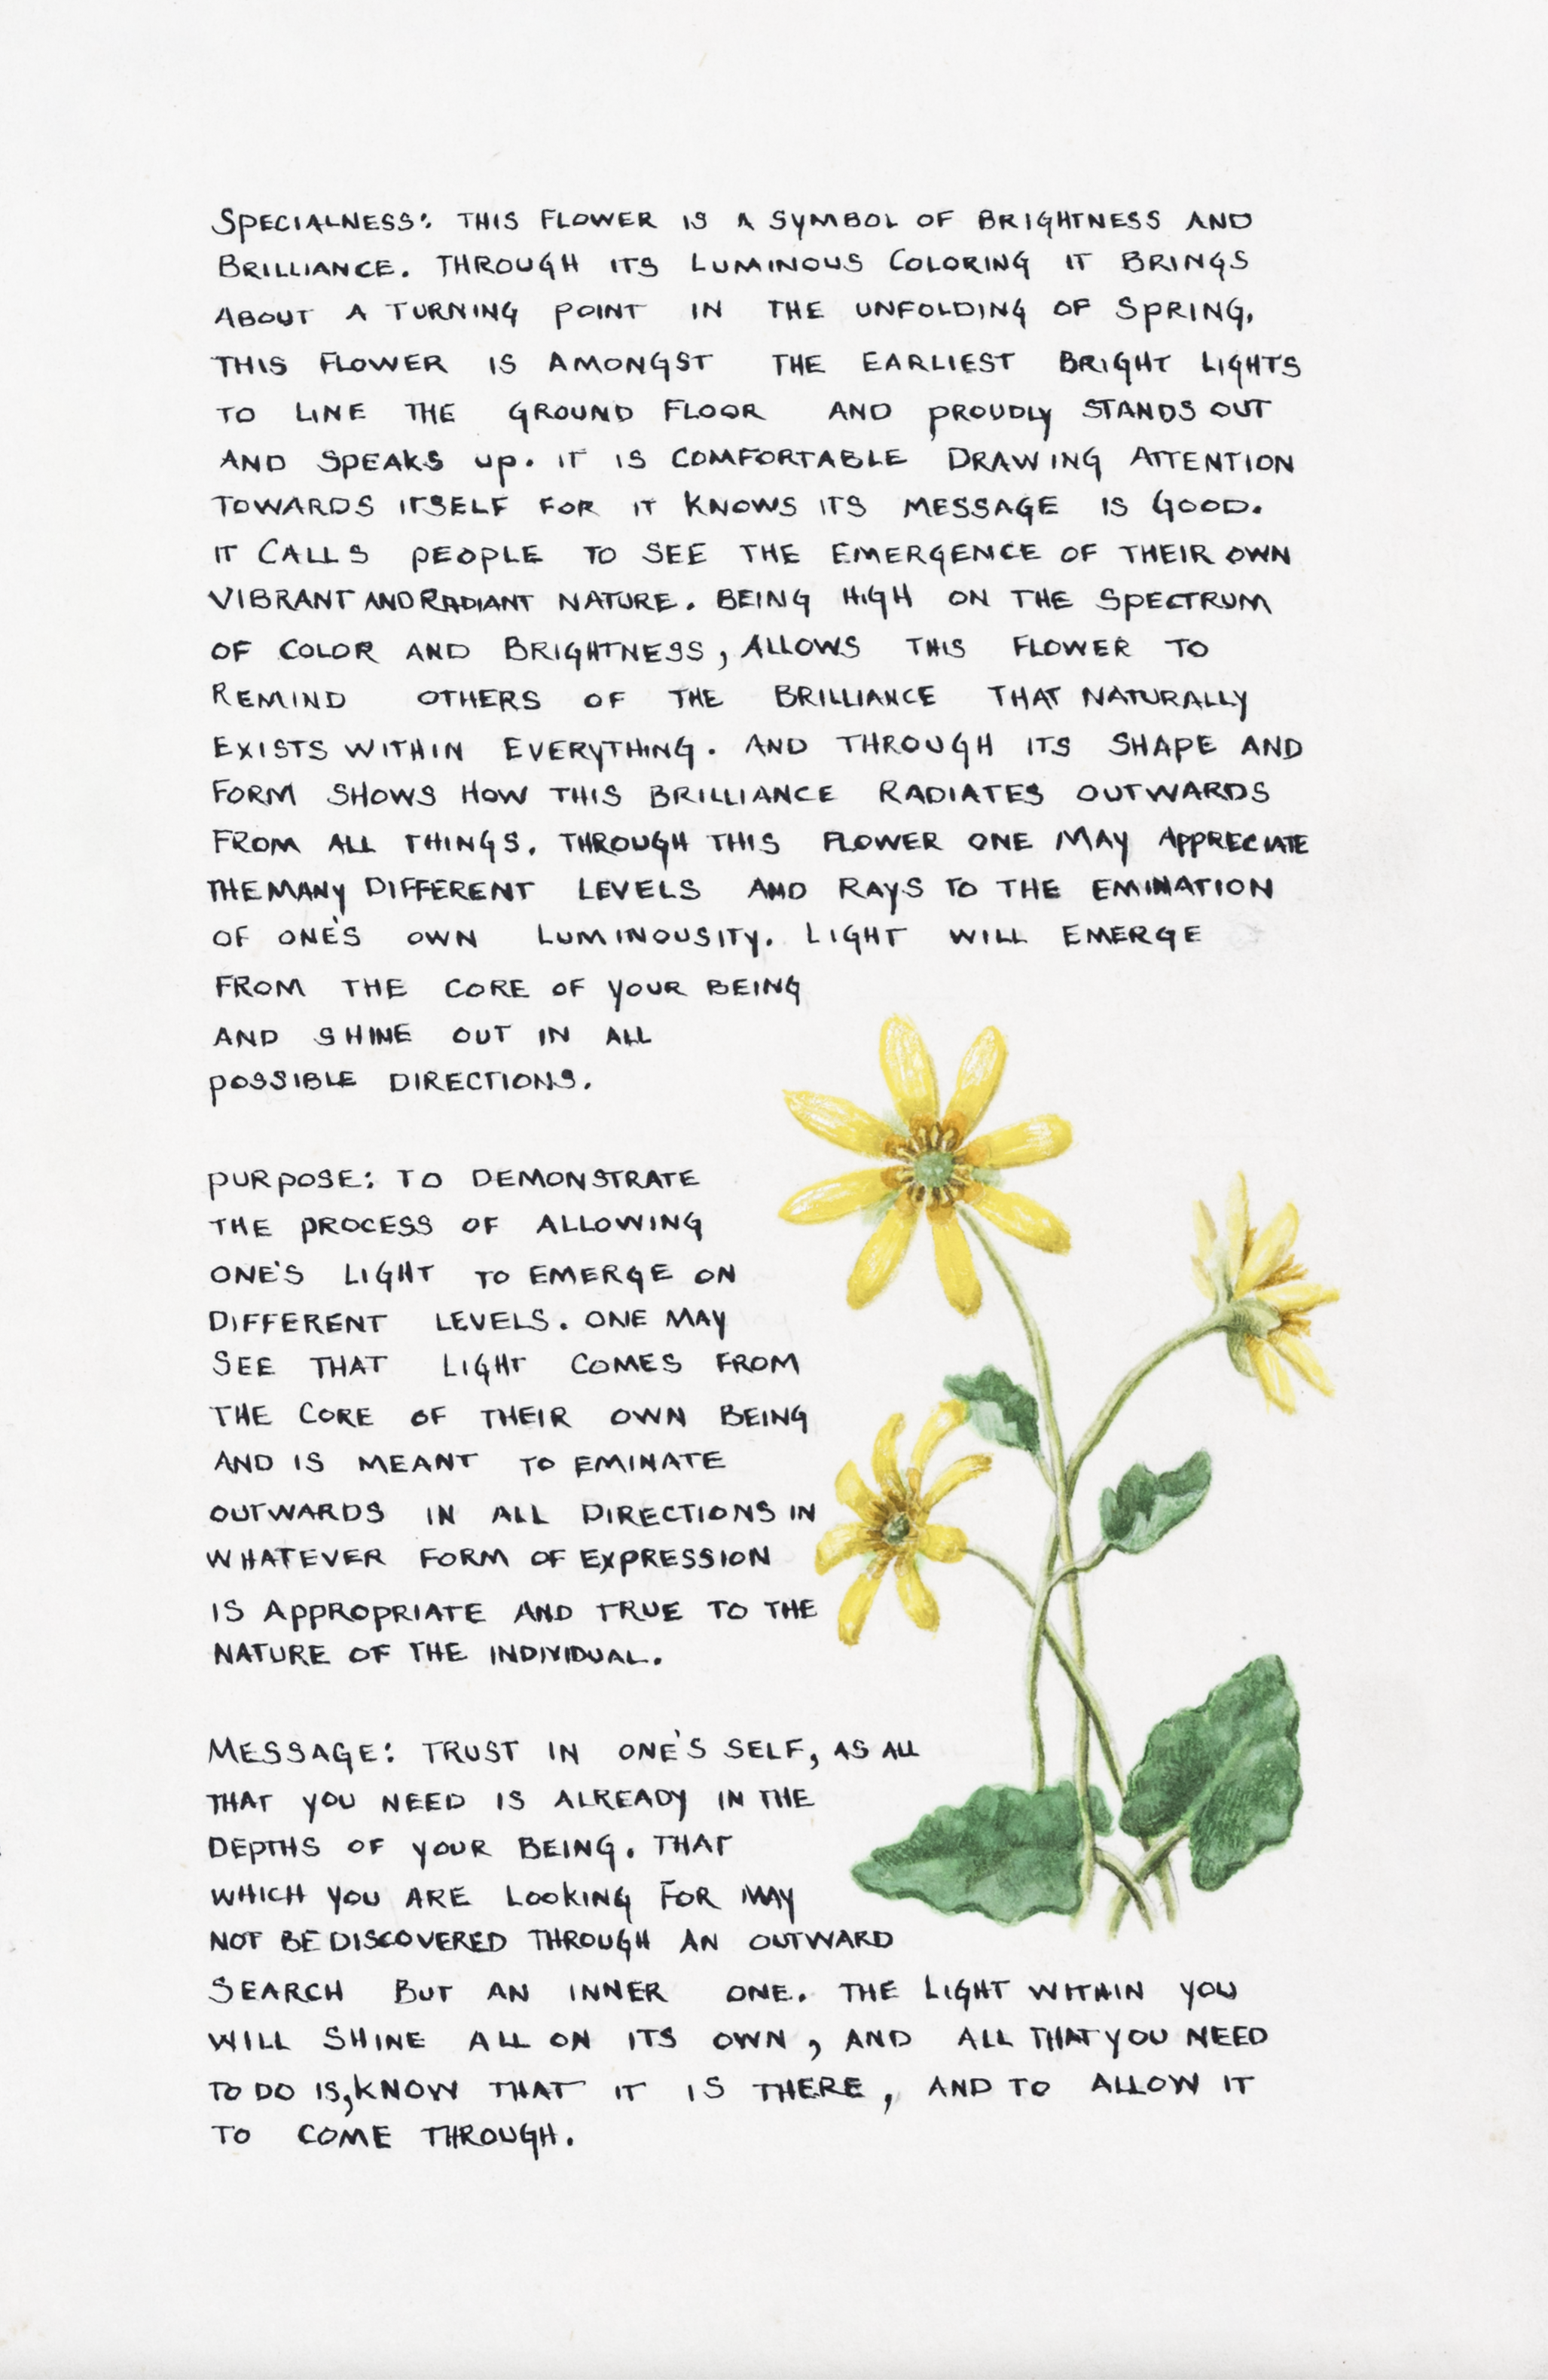 SPECIALNESS: THIS FLOWER IS A SYMBOL OF BRIGHTNESS AND
BRILLIANCE. THROUGH ITS LUMINOUS COLORING IT BRINGS
ABOUT A TURNING POINT IN THE UNFOLDING OF SPRING.
THIS FLOWER IS AMONGST THE EARLIEST BRIGHT LIGHTS
TO LINE THE GROUND FLOOR AND PROUDLY STANDS OUT
AND SPEAKS UP. IT IS COMFORTABLE DRAWING ATTENTION
TOWARDS ITSELF FOR IT KNOWS ITS MESSAGE IS GOOD.
IT CALLS PEOPLE TO SEE THE EMERGENCE OF THEIR OWN
VIBRANT AND RADIANT NATURE. BEING HIGH ON THE SPECTRUM
OF COLOR AND BRIGHTNESS, ALLOWS THIS FLOWER TO
REMIND OTHERS OF THE BRILLIANCE THAT NATURALLY
EXISTS WITHIN EVERYTHING. AND THROUGH ITS SHAPE AND
FORM SHOWS HOW THIS BRILLIANCE RADIATES OUTWARDS
FROM ALL THINGS. THROUGH THIS FLOWER ONE MAY APPRECIATE
THE MANY DIFFERENT LEVELS AND RAYS TO THE EMINATION
OF ONE'S OWN LUMINOUSITY. LIGHT WILL EMERGE
FROM THE CORE OF YOUR BEING
AND SHINE OUT IN ALL
POSSIBLE DIRECTIONS.
PURPOSE: TO DEMONSTRATE
THE PROCESS OF ALLOWING
ONE'S LIGHT TO EMERGE ON
DIFFERENT LEVELS. ONE MAY
SEE THAT LIGHT COMES FROM
THE CORE OF THEIR OWN BEING
AND IS MEANT TO EMINATE
OUTWARDS IN ALL DIRECTIONS IN
WHATEVER FORM OF EXPRESSION
IS APPROPRIATE AND TRUE TO THE
NATURE OF THE INDIVIDUAL.
MESSAGE: TRUST IN ONE'S SELF, AS ALL
THAT YOU NEED IS ALREADY IN THE
DEPTHS OF YOUR BEING. THAT
WHICH YOU ARE LOOKING FOR MAY
NOT BE DISCOVERED THROUGH AN OUTWARD
SEARCH BUT AN INNER ONE. THE LIGHT WITHIN YOU
WILL SHINE ALL ON ITS OWN, AND ALL THAT YOU NEED
TO DO IS, KNOW THAT IT IS THERE, AND TO ALLOW IT
TO COME THROUGH.